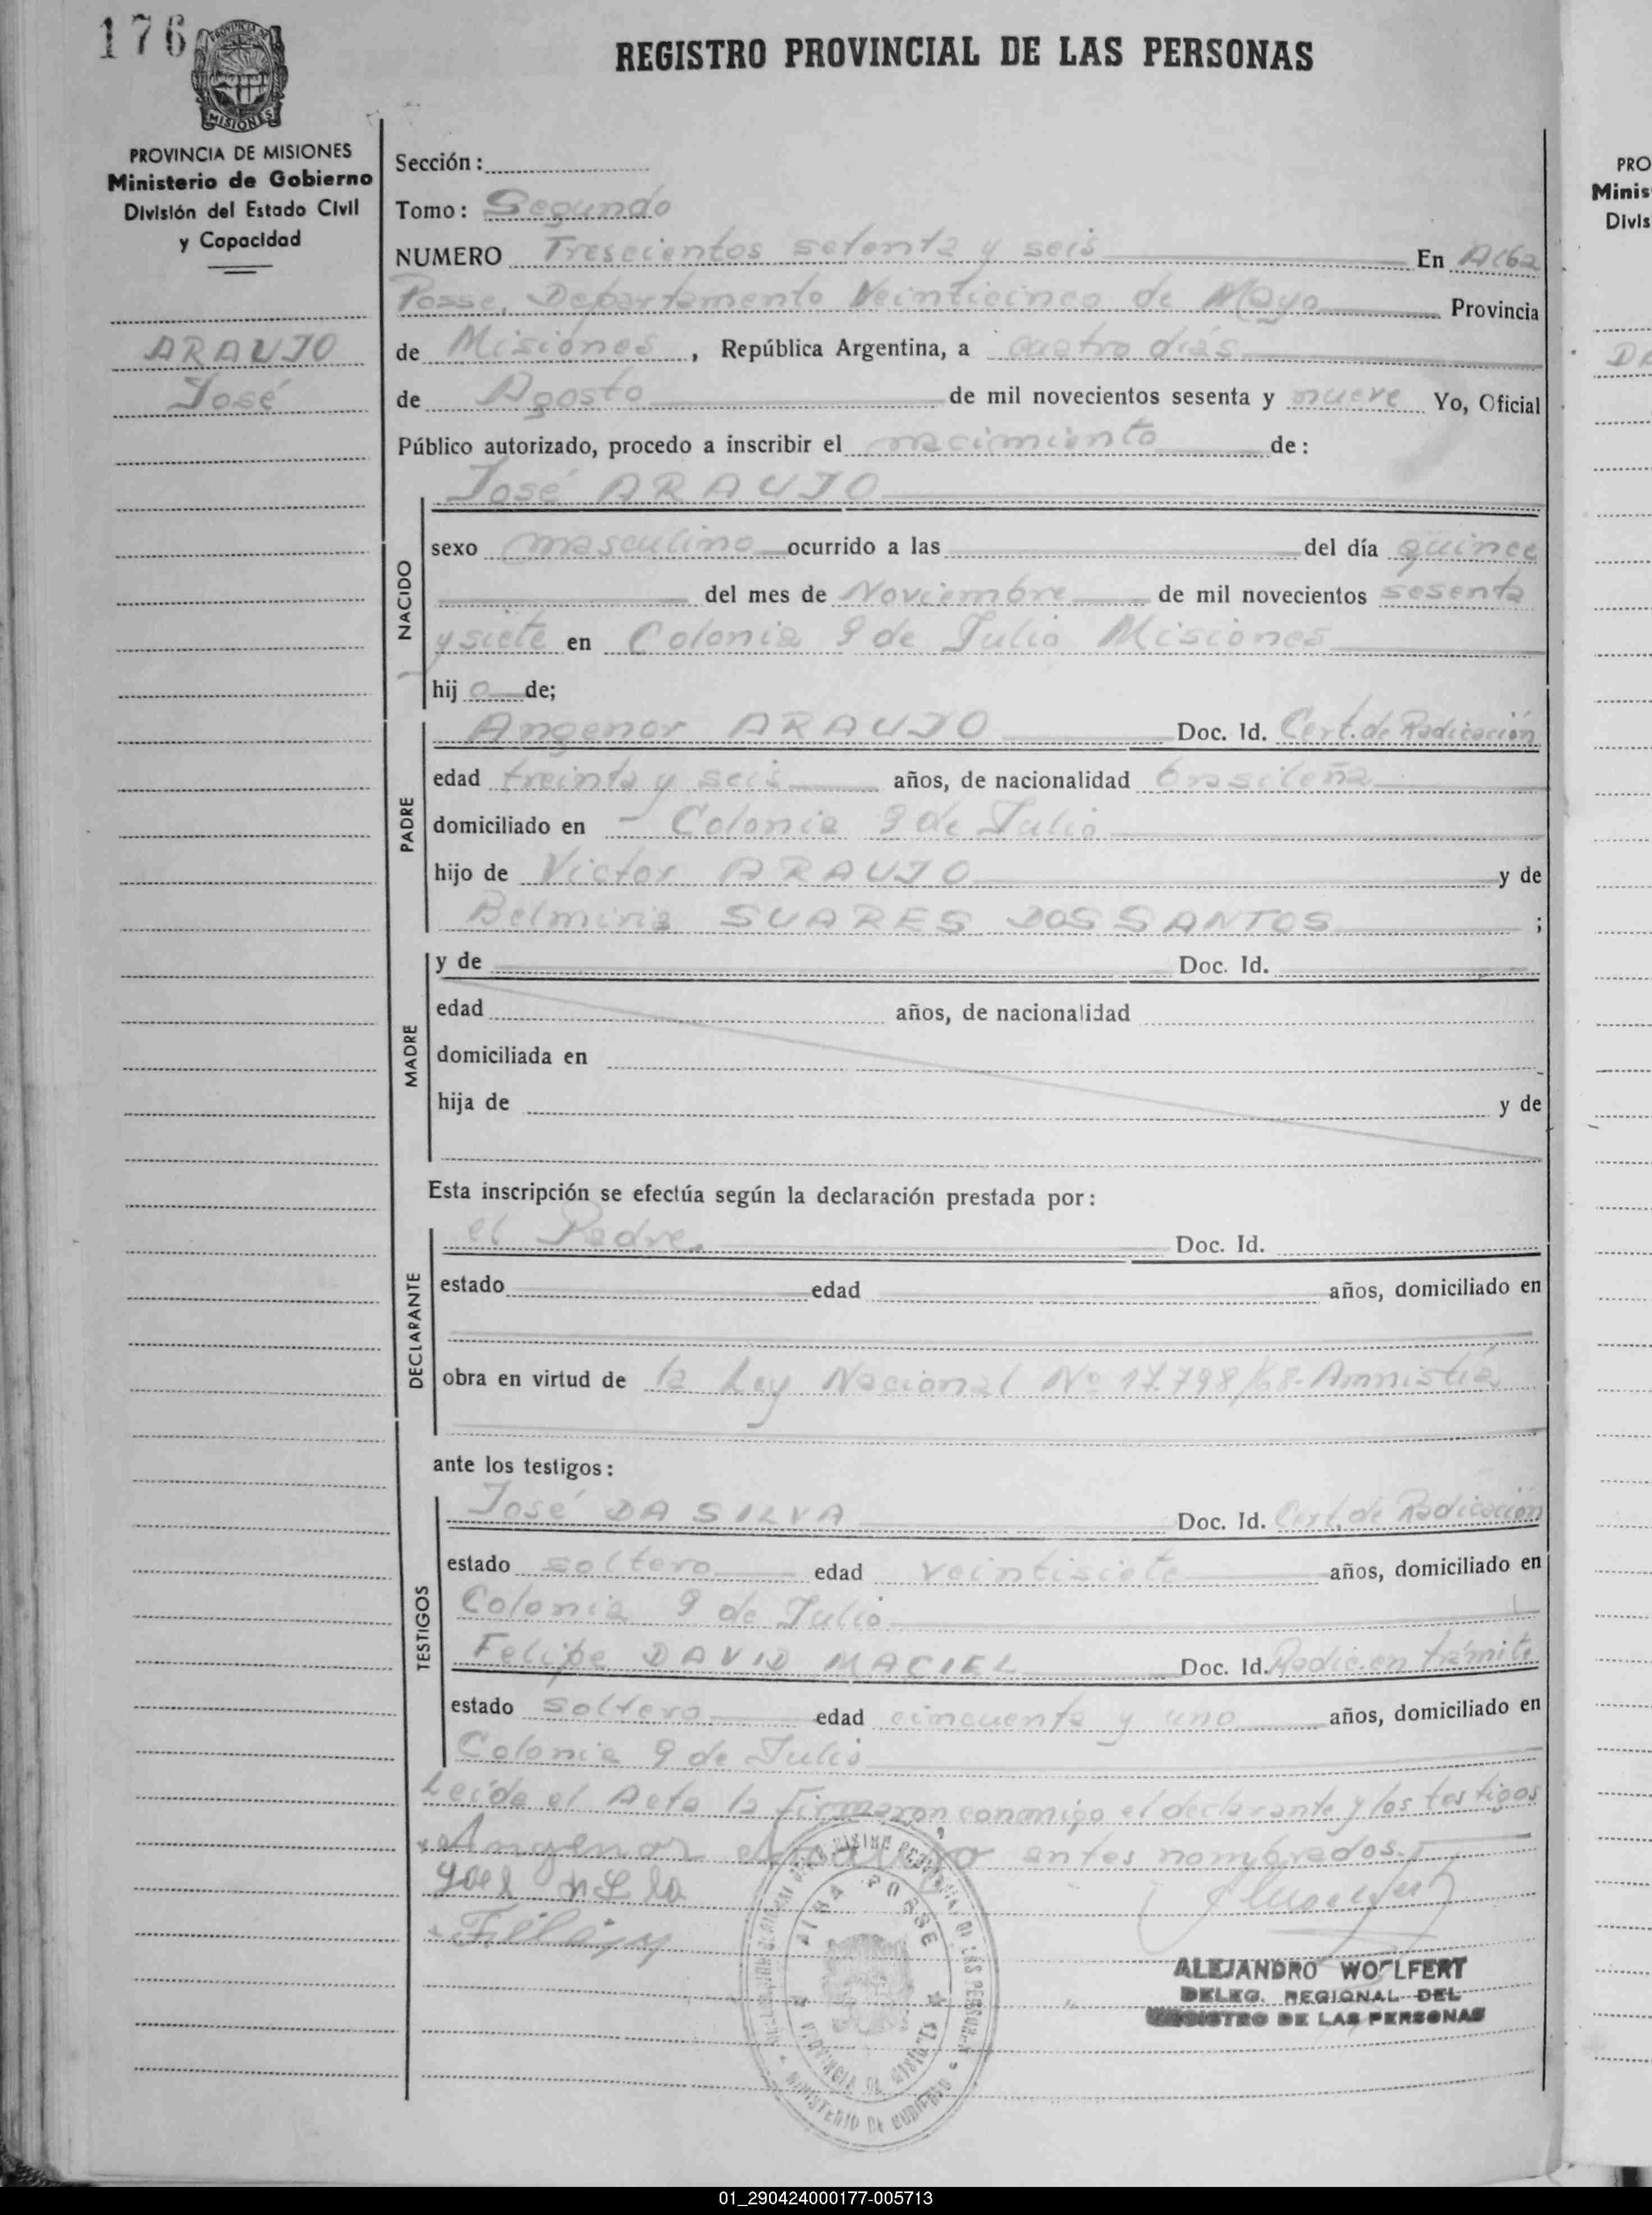 176
REGISTRO PROVINCIAL DE LAS PERSONAS
MISIONES
PROVINCIA DE MISIONES
Ministerio de Gobierno
División del Estado Civil
y Capacidad
ARAUJO
José
Sección:
Tomo: Segundo
NUMERO Trescientos setenta y seis En Alba
Posse, Departamento Veinticinco de Mayo Provincia
de Misiones, República Argentina, a cuatro días
de Agosto de mil novecientos sesenta y nueve Yo, Oficial
Público autorizado, procedo a inscribir el nacimiento de:
José ARAUJO
NACIDO
sexo masculino ocurrido a las del día quince
del mes de Noviembre de mil novecientos sesenta
y siete en Colonia 9 de Julio Misiones
hijo de;
PADRE
Angenor ARAUJO Doc. Id. Cert. de Radicación
edad treinta y seis años, de nacionalidad brasileña
domiciliado en - Colonia 9 de Julio
hijo de Victor ARAUJO y de
Belmiria SUARES DOS SANTOS ;
MADRE
y de Doc. Id.
edad años, de nacionalidad
domiciliada en
hija de y de
Esta inscripción se efectúa según la declaración prestada por:
DECLARANTE
el Padre. Doc. Id.
estado edad años, domiciliado en
obra en virtud de la Ley Nacional Nº 17.798/68. Amnistía.
ante los testigos:
TESTIGOS
José DA SILVA Doc. Id. Cert. de Radicación
estado soltero edad veintisiete años, domiciliado en
Colonia 9 de Julio
Felipe DAVID MACIEL Doc. Id. Radic. en trámite
estado soltero edad cincuenta y uno años, domiciliado en
Colonia 9 de Julio
Leída el Acta la firmaron conmigo el declarante y los testigos
Angenor Araujo antes nombrados.
ALBA POSSE
PROVINCIA DE MISIONES
MINISTERIO DE GOBIERNO
ALEJANDRO WOLFERT
DELEG. REGIONAL DEL
REGISTRO DE LAS PERSONAS
PRO
Minis
Divis
DA
01_290424000177-005713